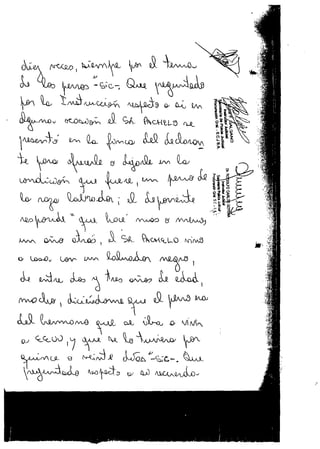 diez veces, siempre por el tema
de los perros"-sic-. Que preguntado
por la Instrucción respecto a si en
alguna ocasión el SR PACHELO se
presentó en la finca del declaran
te para ofrecerle o dejarle en la
condición que fuere, un perro de
la raza labrador; el deponente
responde "que hace más o menos,
un año atrás, el SR. PACHELO vino
a casa con un labrador negro,
de entre dos y tres años de edad,
macho, diciéndome que el perro era
del hermano que se iba a vivir
a EEUU, y que se lo tuviera por
quince o veinte días"-sic-. Que
preguntado respecto a si recuerda